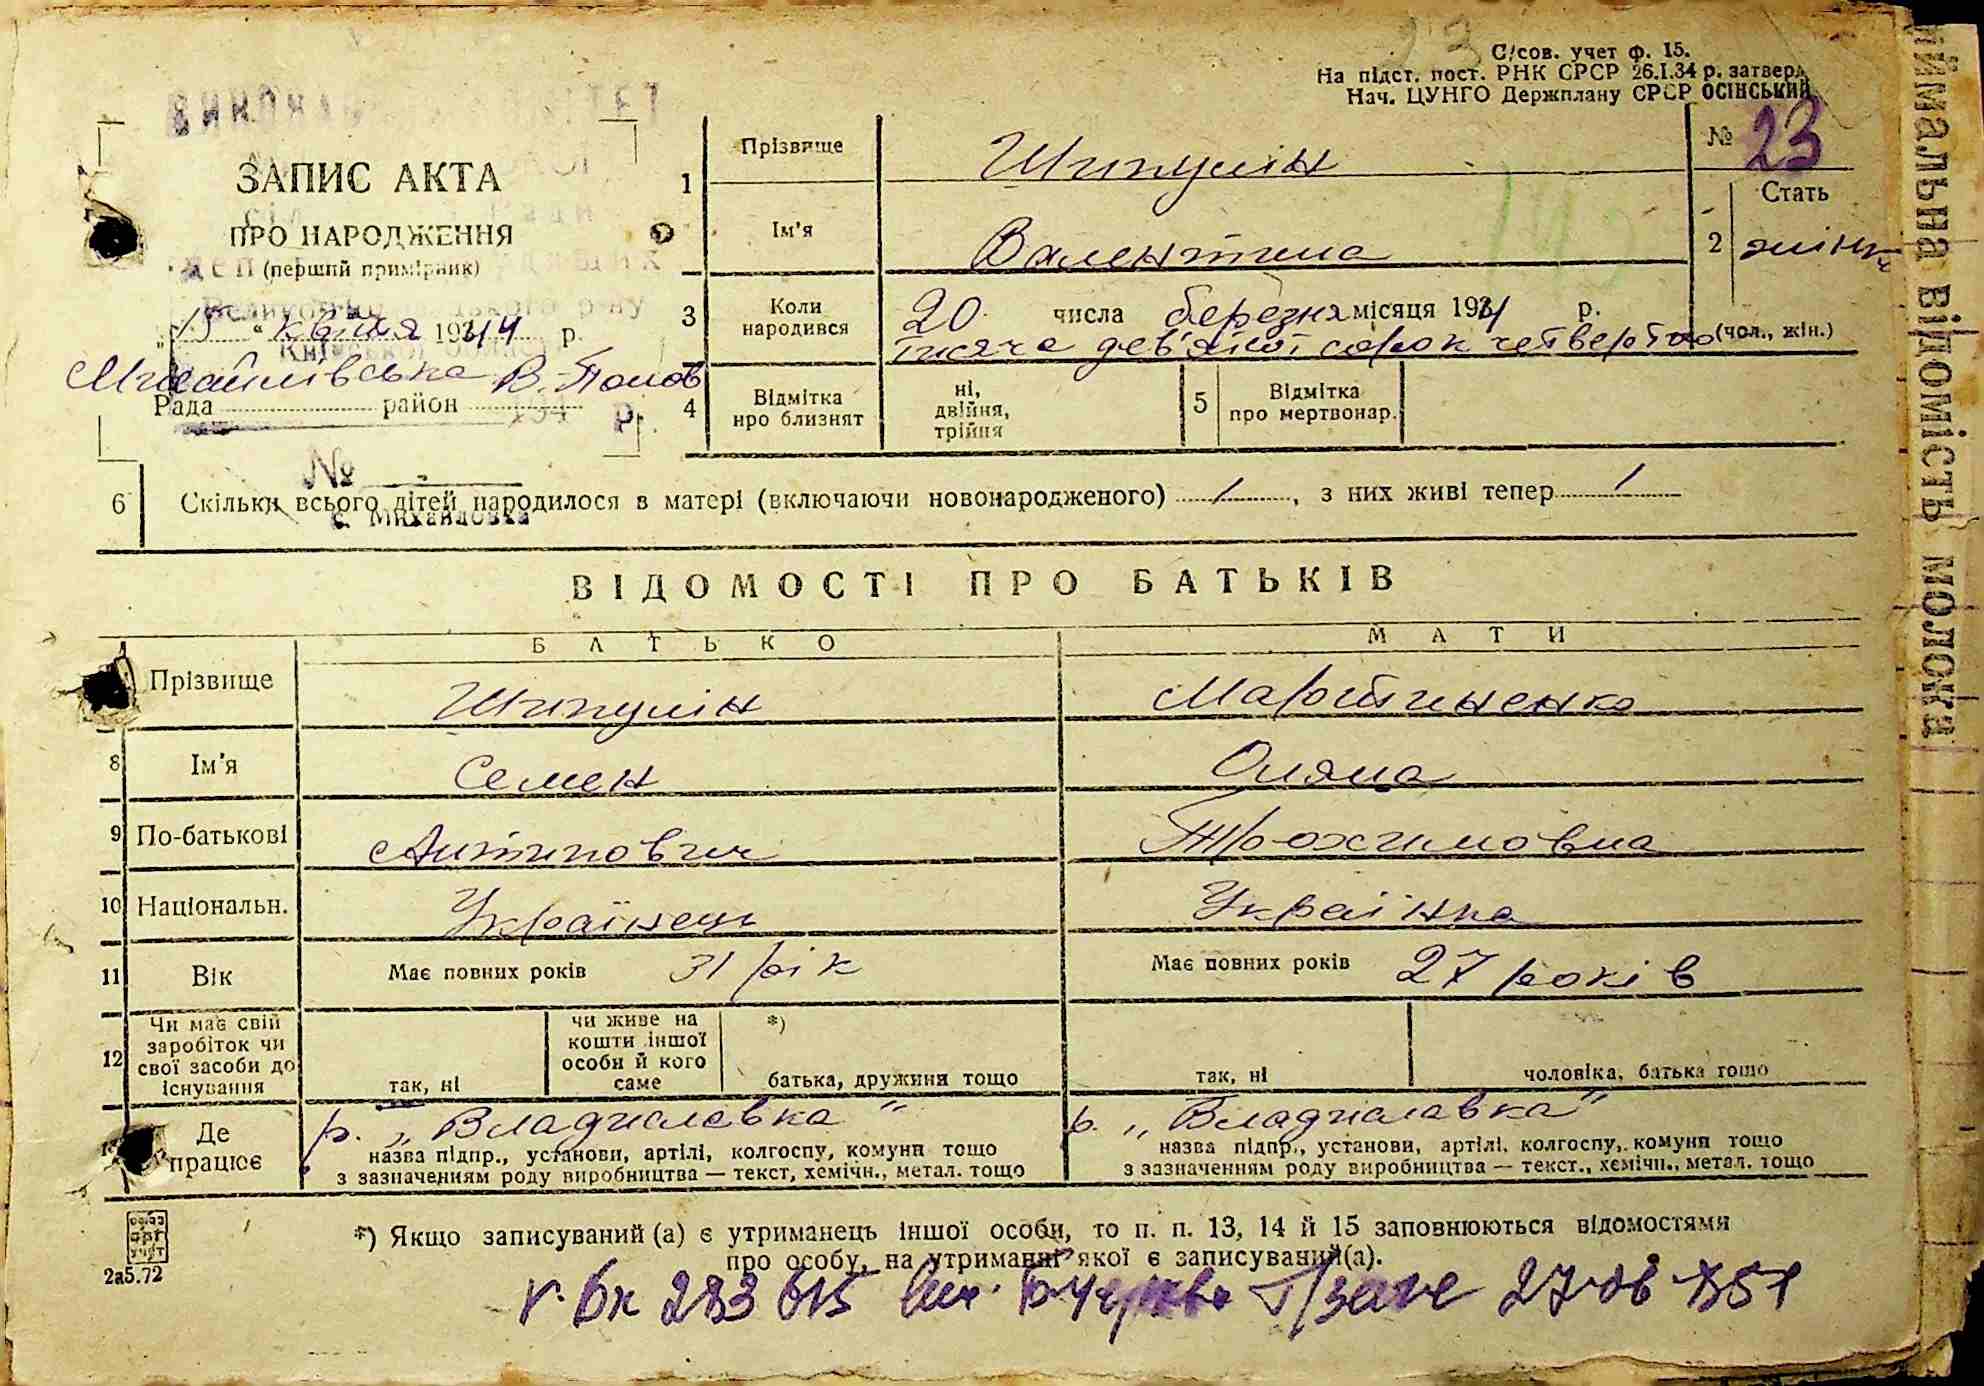 С/сов. учет ф. 15.
На підст. пост. РНК СРСР 26.I.34 р. затверд
Нач. ЦУНГО Держплану СРСР ОСІНСЬКИЙ
ЗАПИС АКТА
ПРО НАРОДЖЕННЯ
(перший примірник)
„15“ квітня 1944 р.
Михайлівська В.-Полов
Рада район
194 р.
№
с. Михайловка
1 Прізвище Шипулін
Ім'я Валентина
№ 23
2 Стать жіноч
(чол., жін.)
3 Коли народився 20 числа березня місяця 1944 р.
тисяча дев'ятсот сорок четвертого
4 Відмітка про близнят ні, двійня, трійня
5 Відмітка про мертвонар.
6 Скільки всього дітей народилося в матері (включаючи новонародженого) 1, з них живі тепер 1
ВІДОМОСТІ ПРО БАТЬКІВ
БАТЬКО МАТИ
Прізвище Шипулін Мартиненко
8 Ім'я Семен Оляна
9 По-батькові Антипович Трохимовна
10 Національн. Українець Українка
11 Вік Має повних років 31 рік Має повних років 27 років
12 Чи має свій заробіток чи свої засоби до існування так, ні чи живе на кошти іншої особи й кого саме *) батька, дружини тощо так, ні чоловіка, батька тощо
Де працює р. „Владиславка“ р. „Владиславка“
назва підпр., установи, артілі, колгоспу, комуни тощо назва підпр., установи, артілі, колгоспу, комуни тощо
з зазначенням роду виробництва — текст, хемічн., метал. тощо з зазначенням роду виробництва — текст., хемічн., метал. тощо
*) Якщо записуваний (а) є утриманець іншої особи, то п. п. 13, 14 й 15 заповнюються відомостями
про особу, на утриманні якої є записуваний(а).
2а5.72
283 615
відомість молока